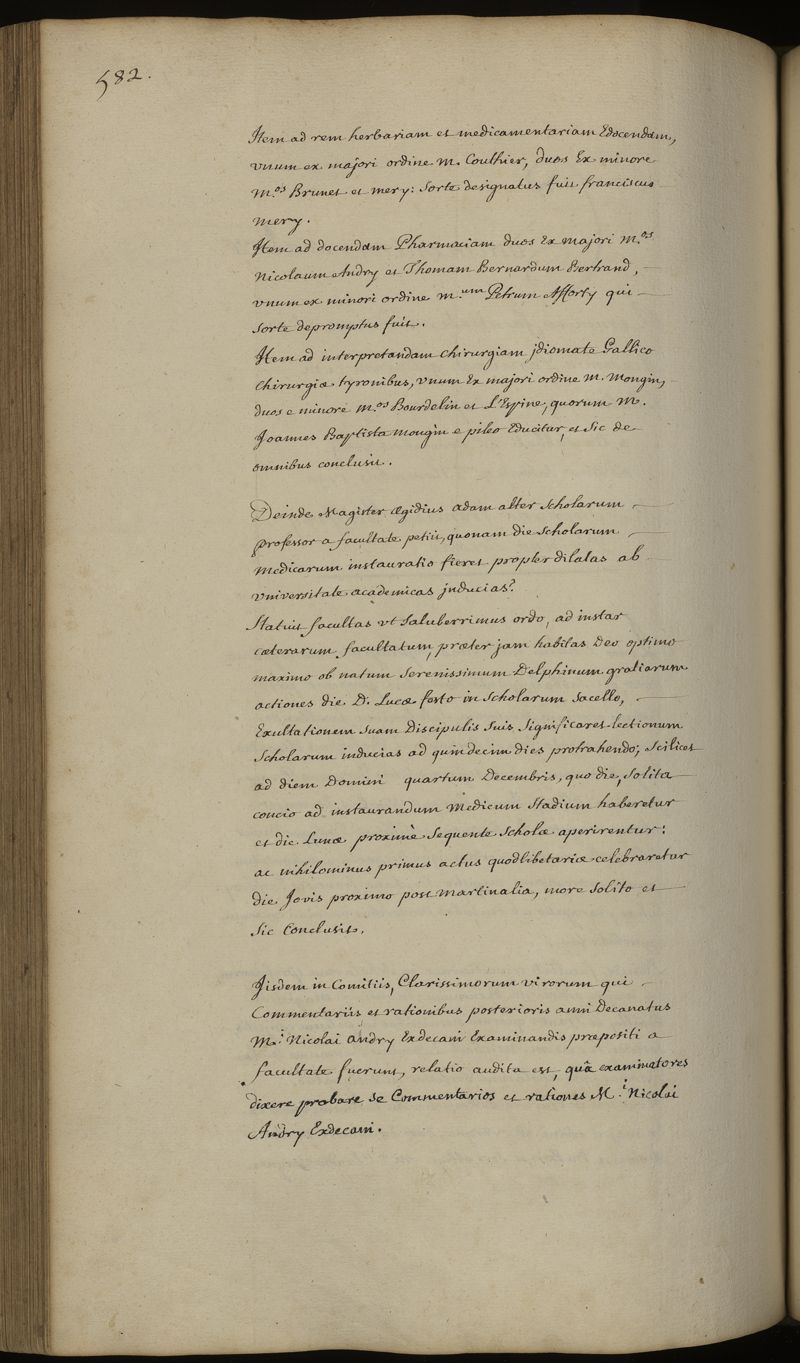 582.
Item ad rem herbariam et medicamentariam Edocendam,
vnum ex majori ordine M. Couthier, duos Ex minore
M.os Brunet et mery: Sorte designatus fuit franciscus
mery.
Item ad docendam Pharmaciam duos Ex majori M.os
Nicolaum Andry et Thomam Bernardum Bertrand,
vnum ex minori ordine M.um Petrum Afforty qui
Sorte depromptus fuit.
Item ad interpretandam chirurgiam jdiomate Gallico
Chirurgiæ tyronibus, vnum Ex majori ordine M. Mongin,
duos e minore M.os Bourdelin et L'Espine, quorum M.
Joannes Baptista Mongin e pileo Educitur, et Sic de
omnibus conclusit.
Deinde Magister ægidius adam alter Scholarum
professor a facultate petiit, quonam die Scholarum
Medicarum instauratio fieret propter dilatas ab
vniversitate academicas jnducias?
Statuit facultas vt Saluberrimus ordo, ad instar
cæterarum facultatum, præter jam habitas Deo optimo
maximo ob natum Serenissimum Delphinum gratiarum
actiones die D. Lucæ festo in Scholarum Sacello,
Exultationem Suam Discipulis Suis Significaret lectionum
Scholarum inducias ad quindecim dies protrahendo; Scilicet
ad diem Domini quartum Decembris, quo die, Solita
concio ad instaurandum Medicum Stadium haberetur
et die Lunæ proximè Sequente Scholæ aperirentur:
ac nihilominus primus actus quodlibetariæ celebraretur
die Jovis proximo post Martinalia, more Solito et
Sic Conclusit.
Jisdem in Comitiis, Clarissimorum virorum qui
Commentariis et rationibus posterioris anni Decanatus
M.i Nicolai andry Exdecani Examinandis præpositi a
facultate fuerunt, relatio audita est, quâ examinatores
dixere probare se Commentarios et rationes M.i Nicolai
Andry Exdecani.